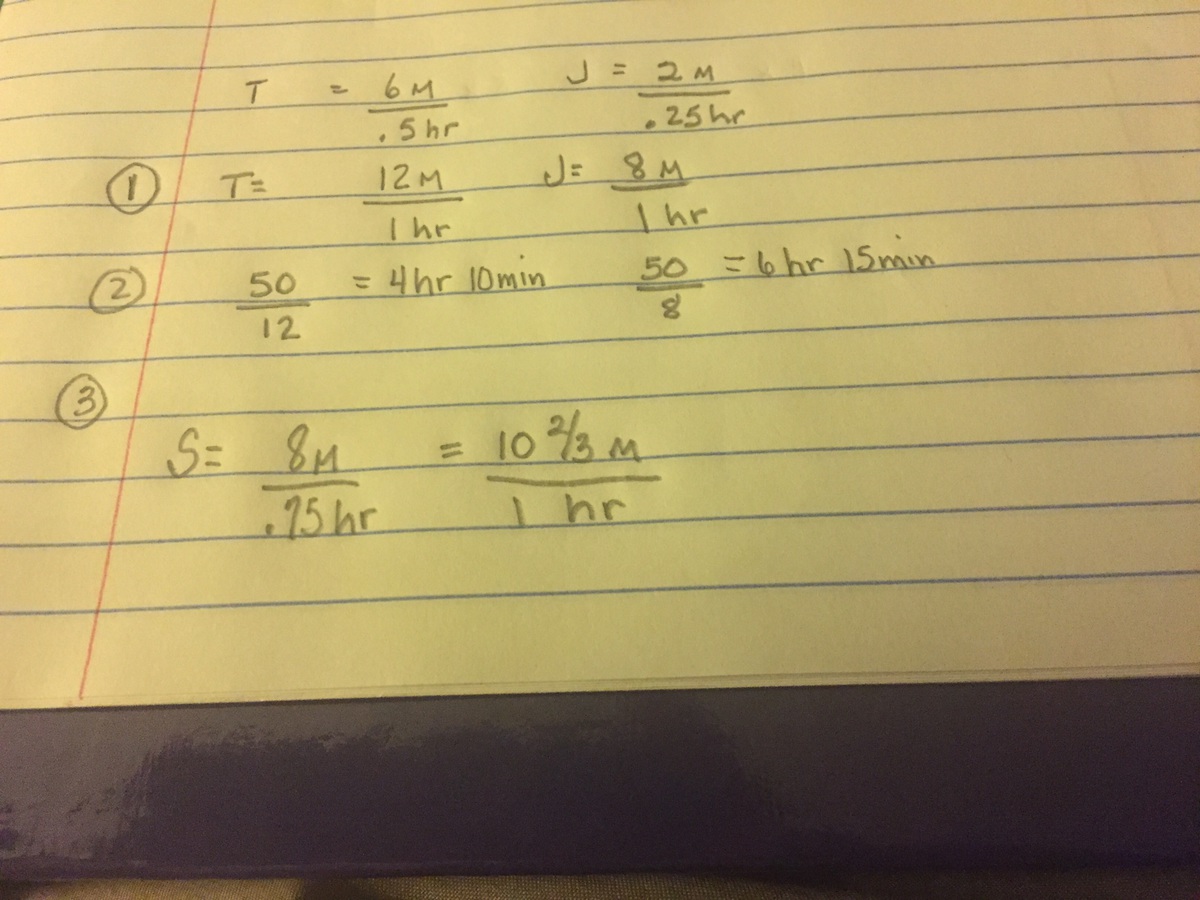 T = 6M/.5hr J = 2M/.25hr
① T= 12M/1hr J= 8M/1hr
② 50/12 = 4hr 10min 50/8 = 6hr 15min
③
S= 8M/.75hr = 10 2/3 M/1 hr